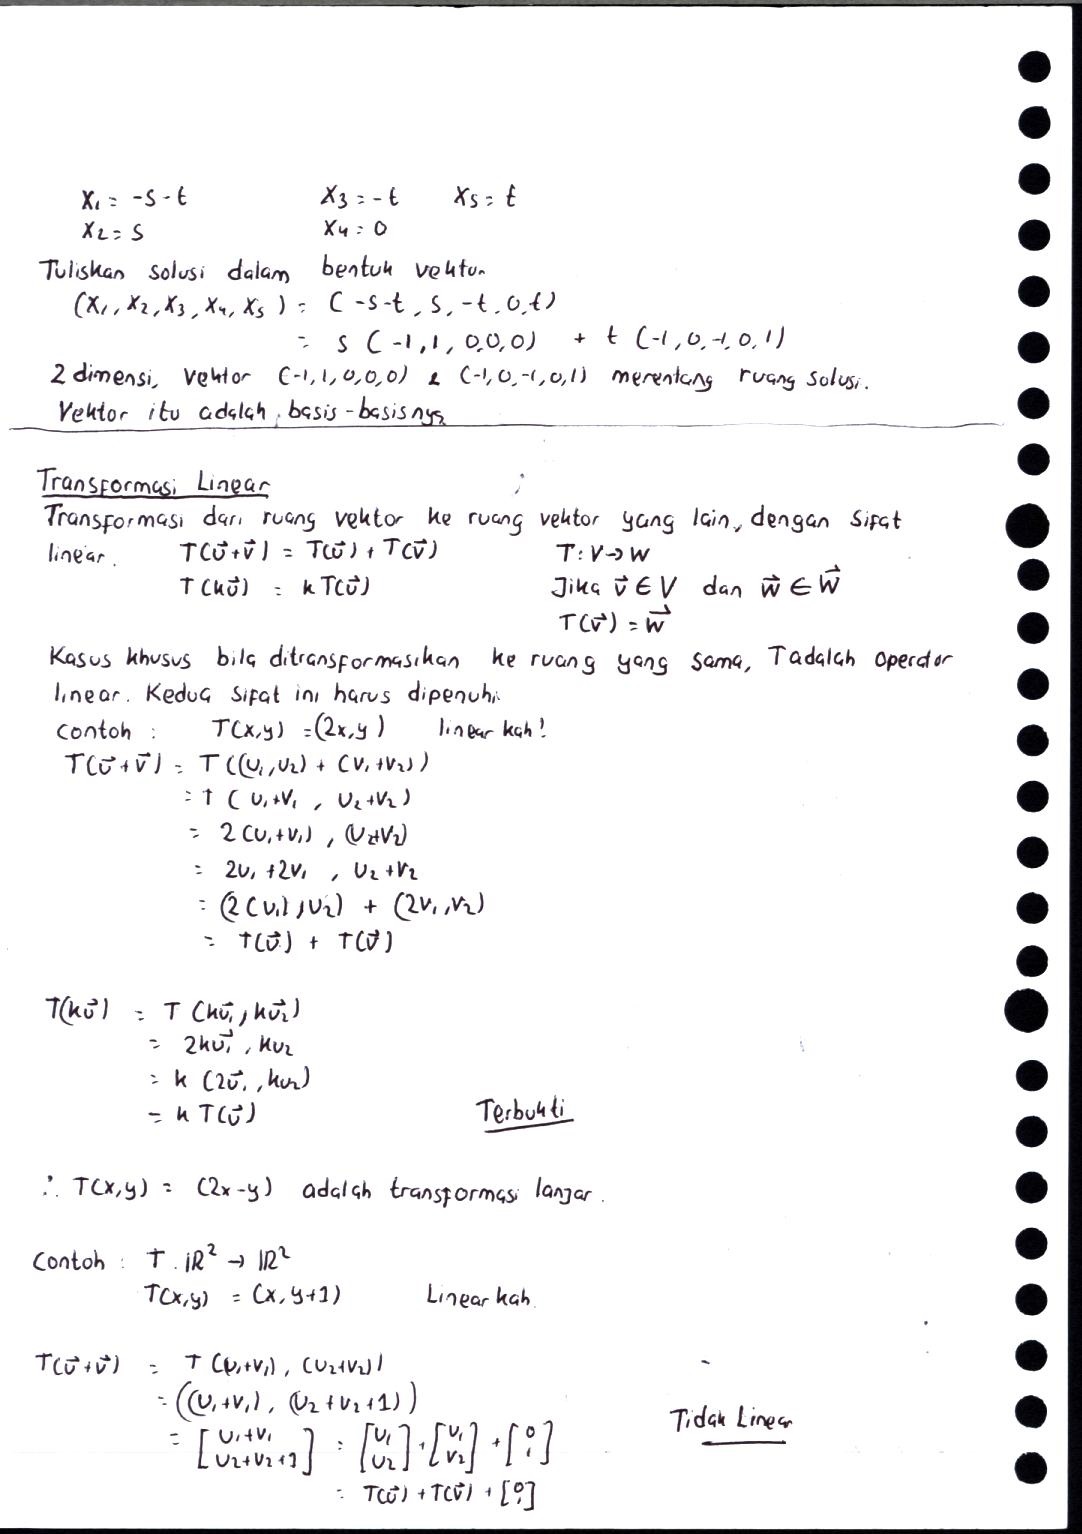 X₁ = -s-t X₃ = -t X₅ = t
X₂ = s X₄ = 0
Tuliskan solusi dalam bentuk vektor
(X₁, X₂, X₃, X₄, X₅) = (-s-t, s, -t, 0, t)
= s (-1, 1, 0,0,0) + t (-1, 0, -1, 0, 1)
2 dimensi, vektor (-1, 1, 0, 0, 0) & (-1, 0, -1, 0, 1) merentang ruang solusi.
Vektor itu adalah basis-basisnya
Transformasi Linear
Transformasi dari ruang vektor ke ruang vektor yang lain, dengan sifat
linear. T(u⃗+v⃗) = T(u⃗) + T(v⃗) T: V→W
T(ku⃗) = k T(u⃗) Jika v⃗ ∈ V dan w⃗ ∈ W⃗
T(v⃗) = w⃗
Kasus khusus bila ditransformasikan ke ruang yang sama, T adalah operator
linear. Kedua sifat ini harus dipenuhi.
contoh : T(x,y) = (2x,y) linear kah!
T(u⃗+v⃗) = T((u₁,u₂) + (v₁+v₂))
= T (u₁+v₁ , u₂+v₂)
= 2(u₁+v₁) , (u₂+v₂)
= 2u₁ +2v₁ , u₂+v₂
= (2(u₁),u₂) + (2v₁,v₂)
= T(u⃗) + T(v⃗)
T(ku⃗) = T (ku⃗₁, ku⃗₂)
= 2ku⃗₁ , ku₂
= k (2u⃗₁ , ku₂)
= k T(u⃗) Terbukti
∴ T(x,y) = (2x-y) adalah transformasi lanjar.
Contoh : T : ℝ² → ℝ²
T(x,y) = (x, y+1) Linear kah.
T(u⃗+v⃗) = T (u₁+v₁), (u₂+v₂))
= ((u₁+v₁), (u₂+v₂+1))
= [u₁+v₁ u₂+v₂+1] = [u₁ u₂] + [v₁ v₂] + [0 1] Tidak Linear
= T(u⃗) + T(v⃗) + [0 1]